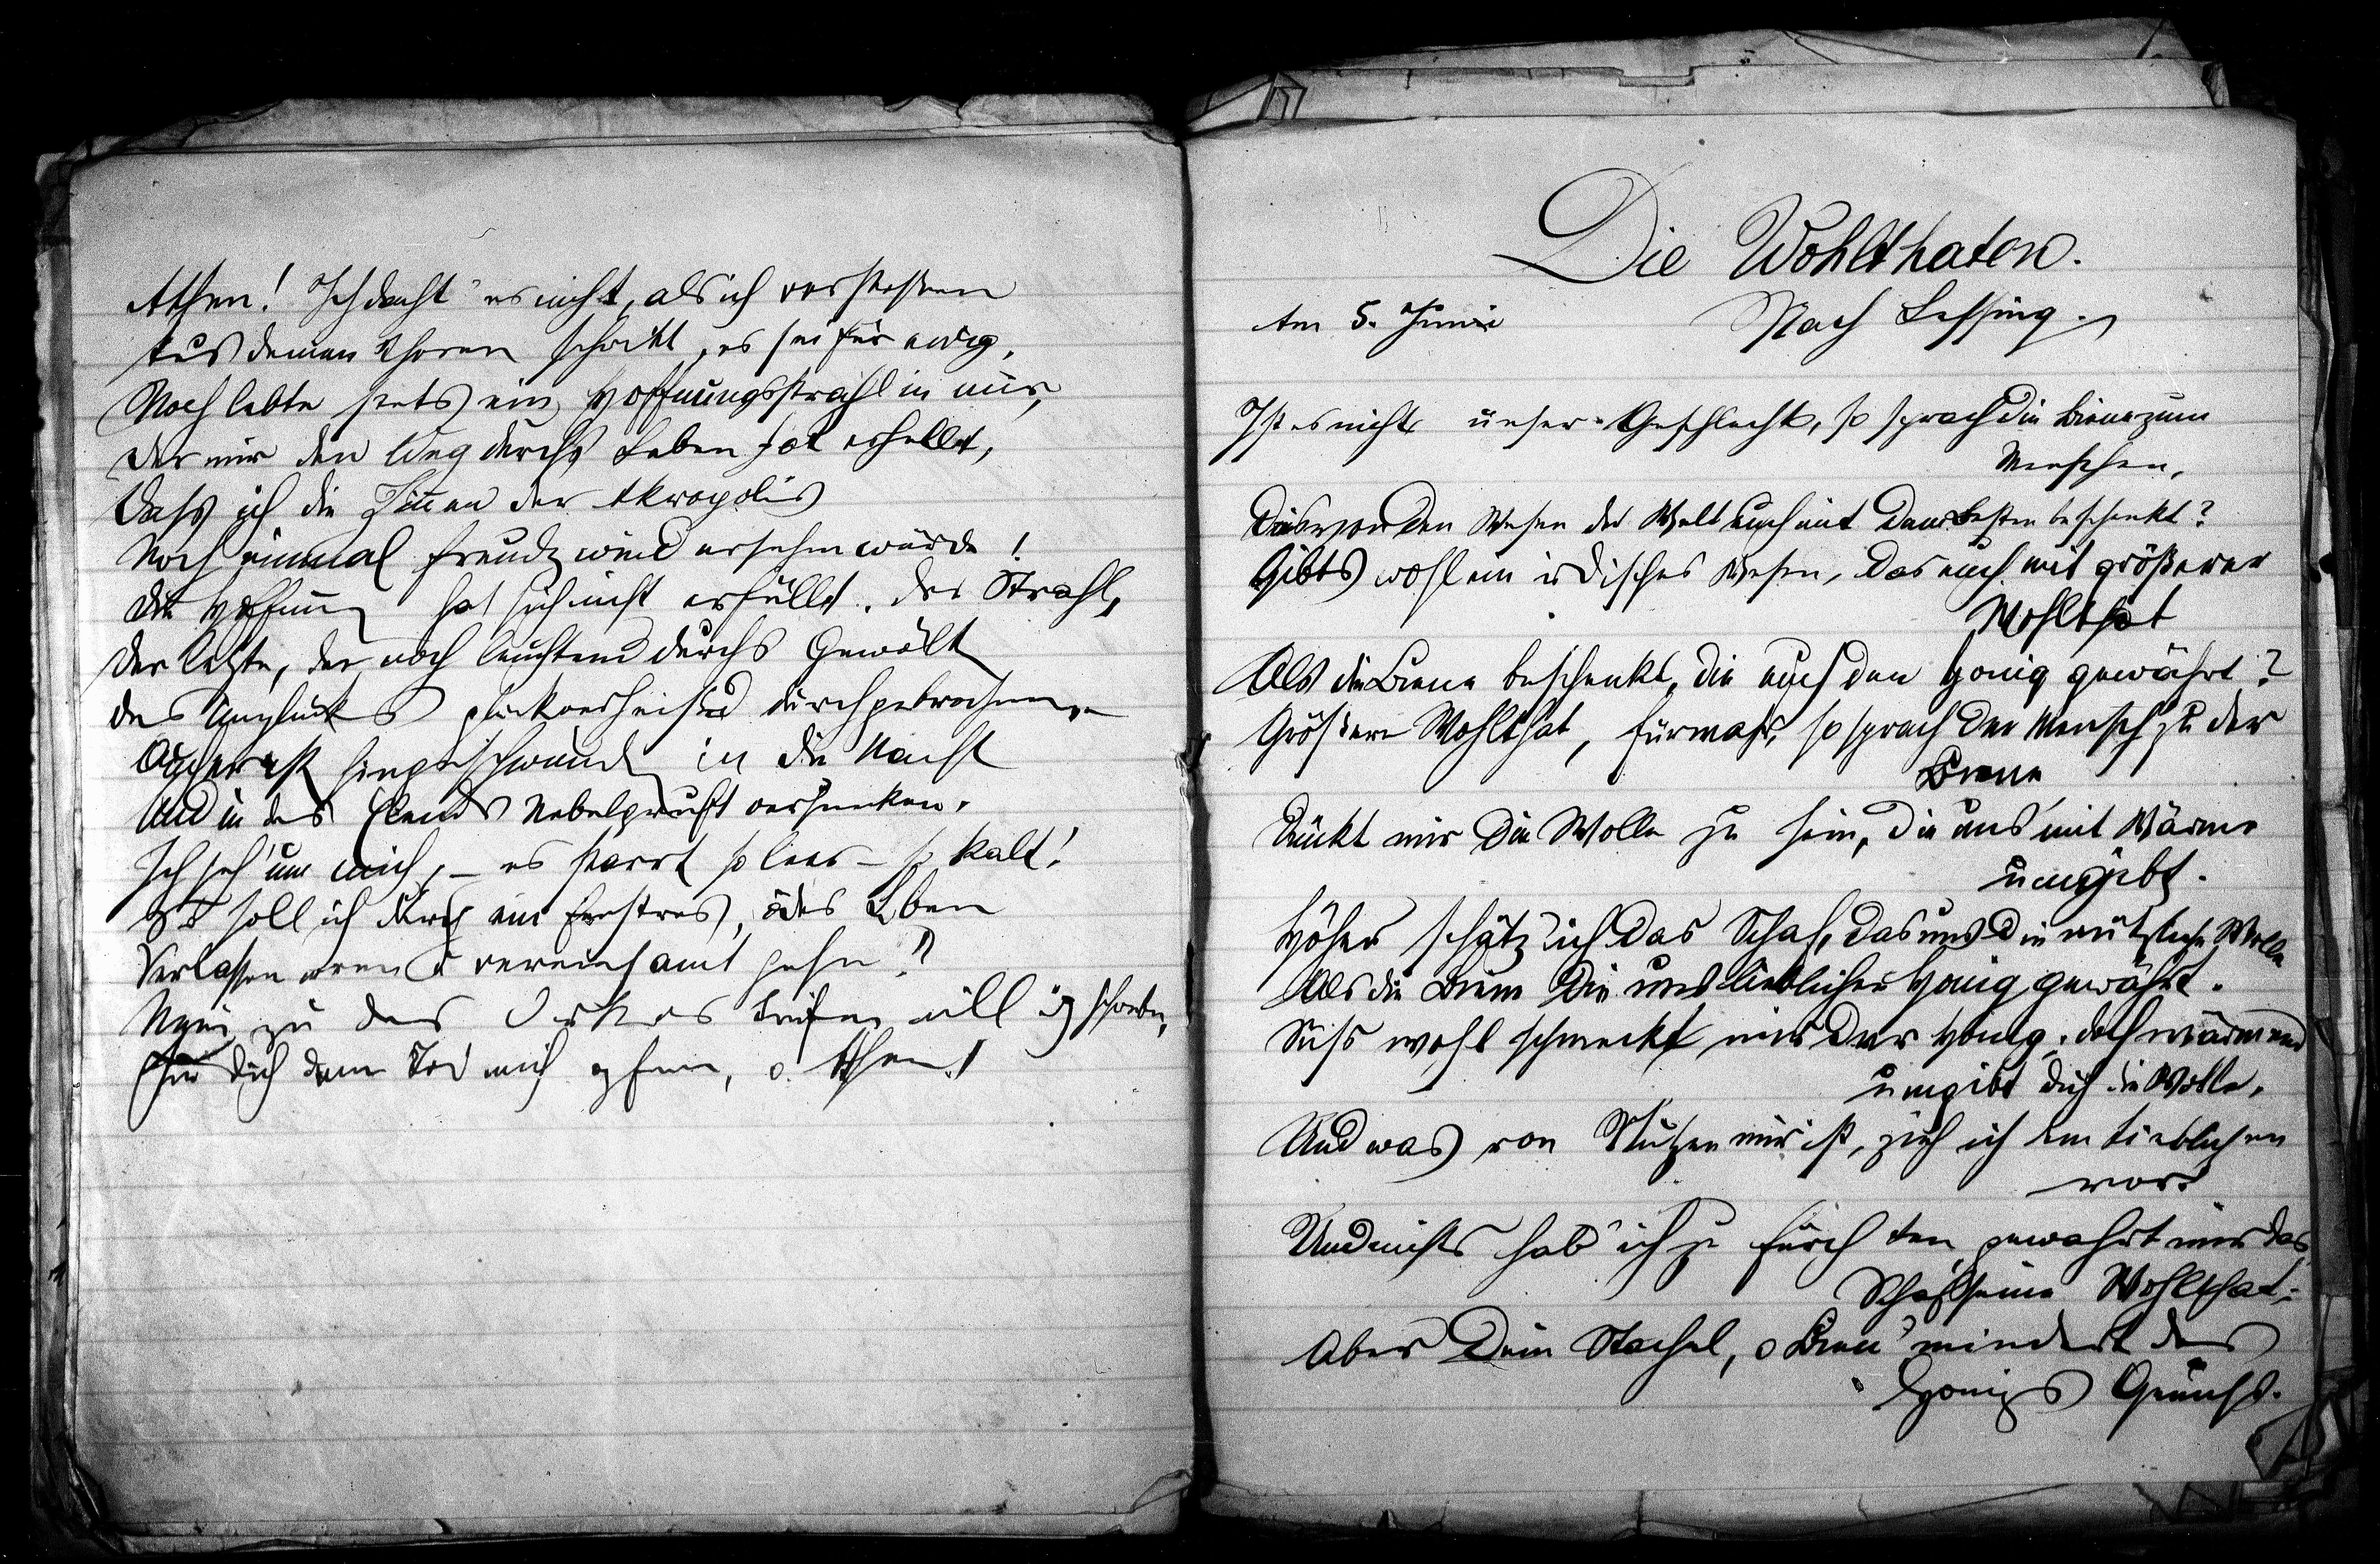 Athen! Ich dacht' es nicht, als ich verstossen
Aus deinen Thoren schritt, es sei für ewig,
Noch lebte stets ein Hoffnungsstrahl in mir,
Der mir den Weg durchs Leben hat erhellt,
Dass ich die Zinnen der Akropolis
Noch einmal freudig wiedersehen würde!
Die Hoffnung hat sich nicht erfüllt. Der Strahl,
Der letzte, der noch leuchtend durchs Gewölk
Des Unglücks glückverheissend durchgebrochen,
Auch er ist hingeschwunden in die Nacht
Und in des Elends Nebelgruft versunken.
Ich seh' um mich, – es starrt so leer – so kalt!
So soll ich durch ein finstres, ödes Leben
Verlassen arm u vereinsamt gehn?
Nein zu des Orkus Tiefen will ich schreiten,
Für dich dem Tod mich opfern, o Athen!
Die Wohlthaten.
Am 5. Juni
Nach Lessing.
Ist es nicht unser Geschlecht, so sprach die Biene zum
Menschen,
Das von den Wesen der Welt euch mit dem Besten beschenkt?
Gibts wohl ein irdisches Wesen, das euch mit größerer
Wohlthat
Als die Biene beschenkt, die euch den Honig gewährt?
Größere Wohlthat, fürwahr, so sprach der Mensch zu der
Biene
Dünkt mir die Wolle zu sein, die uns mit Wärme
umgibt.
Höher schätz' ich das Schaf, das uns die nützliche Wolle
Als die Biene die uns lieblichen Honig gewährt.
Süss wohl schmeckt mir der Honig, doch wärmend
umgibt dich die Wolle,
Und was von Nutzen mir ist, zieh ich dem Lieblichen
vor.
Und nichts hab' ich zu fürchten gewährt mir das
Schaf seine Wohlthat;
Aber Dein Stachel, o Biene mindert des
Honigs Genuss.